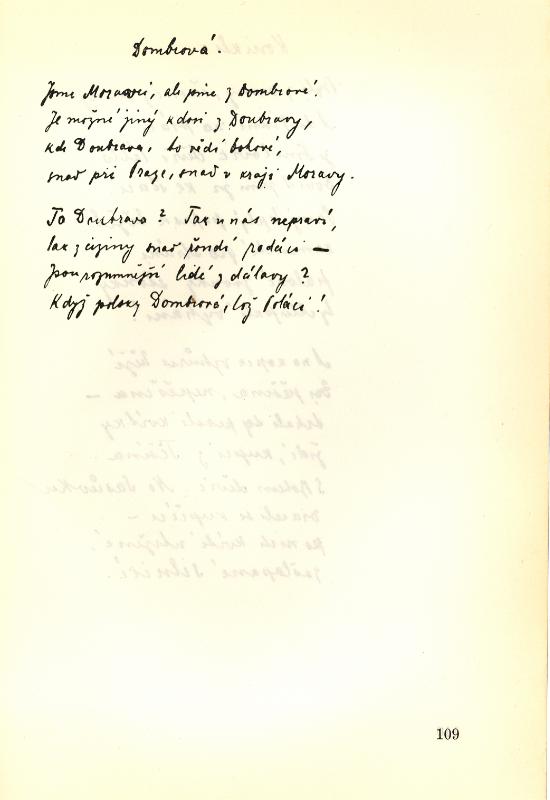 Dombrová.
Jsme Moravci, ale jsme z Dombrové!
Je možné jiný kdosi z Doubravy,
kde Doubrava, to vědí bohové,
snad při Praze, snad v kraji Moravy.
To Doubrava? Tak u nás nepraví,
tak z ciziny snad řondí rodáci —
Jsou rozumnější lidé z dálavy?
Když polsky Dombrová, což Poláci!
109